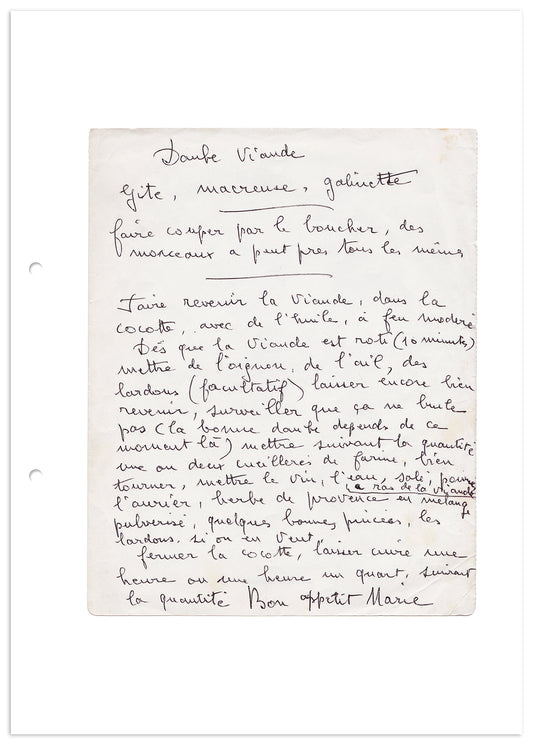 Daube Viande
Gite, macreuse, galinette
faire couper par le boucher, des
monceaux a peut pres tous les mêmes
Faire revenir la Viande, dans la
cocotte, avec de l'huile, à feu modéré
Dés que la Viande est roti (10 minutes)
mettre de l'oignon, de l'ail, des
lardons (facultatif) laisser encore bien
revenir, surveiller que ça ne brule
pas (la bonne daube depends de ce
moment là) mettre suivant la quantité
une ou deux cueillères de farine, bien
tourner, mettre le vin, l'eau, salé, poivre
a ras de la viande
l'aurier, herbe de provence en mélange
pulverisé, quelques bonnes pincées, les
lardons. si on en Veut,
fermer la cocotte, laisser cuire une
heure ou une heure un quart, suivant
la quantité Bon appetit Marie